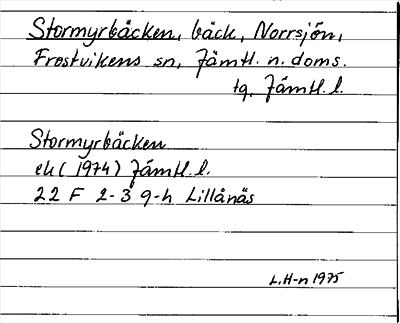 Stormyrbäcken, bäck, Norrsjön,
Frostvikens sn, Jämtl. n. doms.
tg, Jämtl. l.
Stormyrbäcken
ek (1974) Jämtl. l.
22 F 2-3 g-h Lillånäs
L.H-n 1975